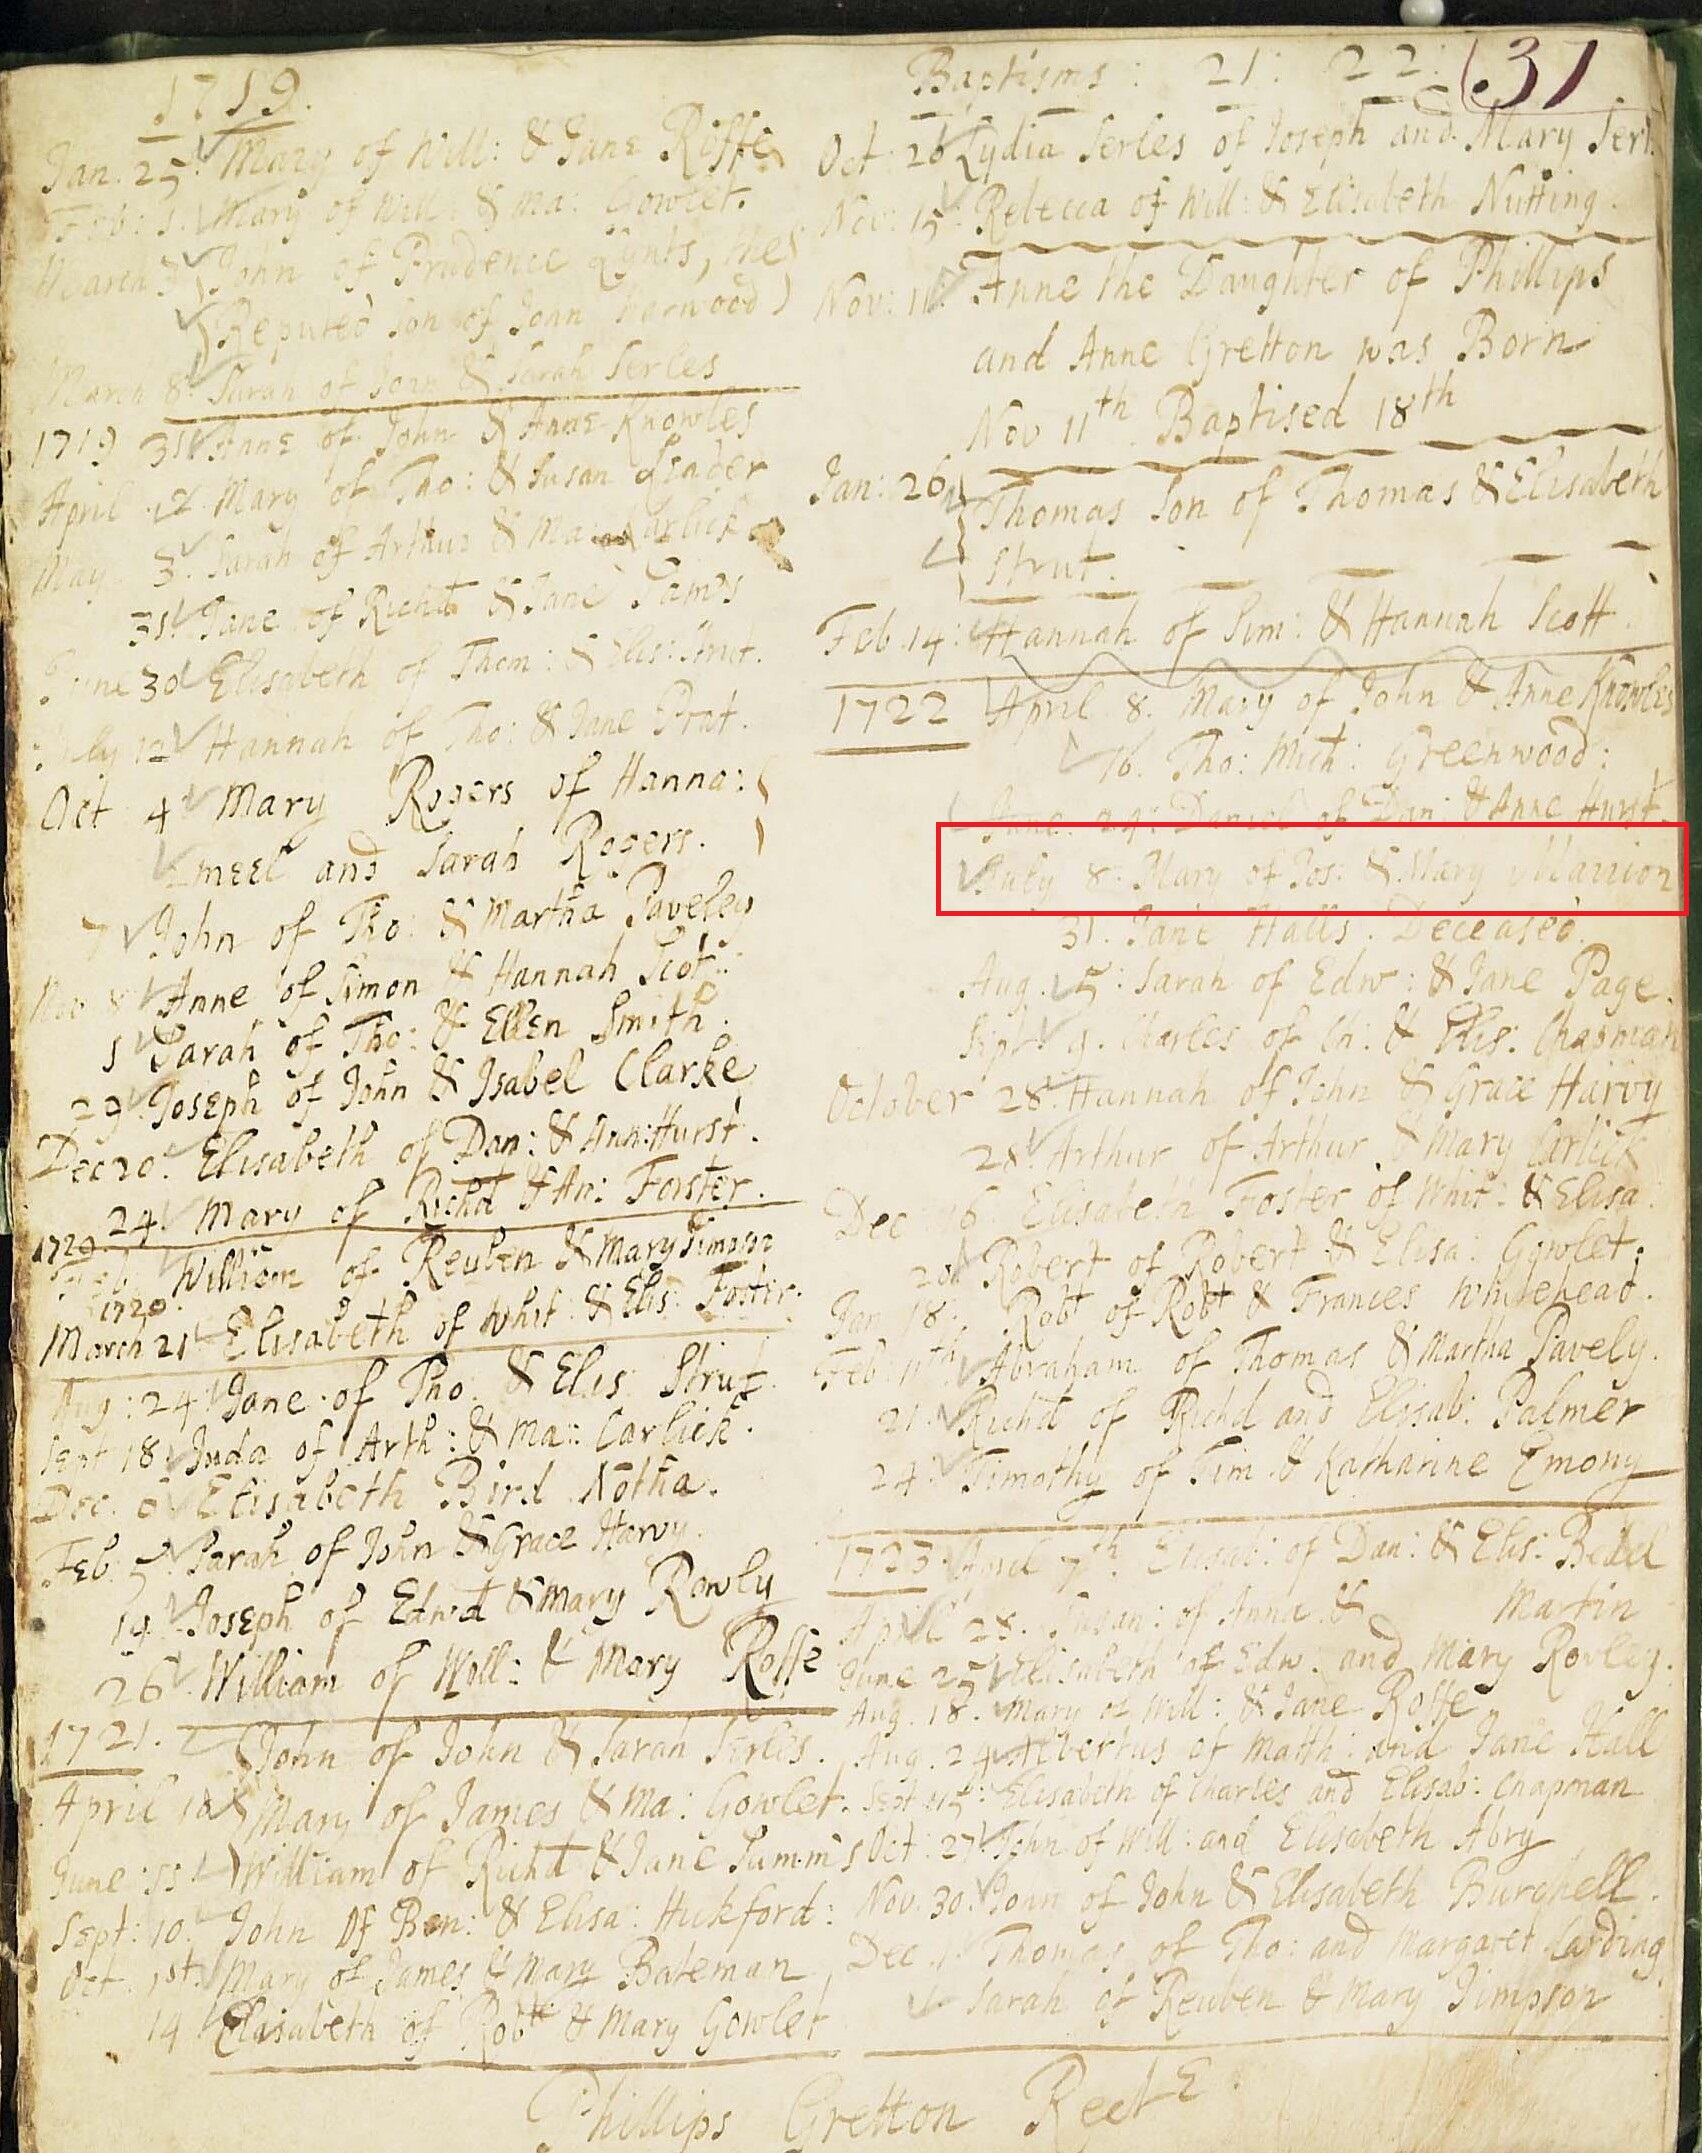 1719.
Jan. 25: Mary of Will: & Jane Roffe
Feb: 1. Mary of Will. & Ma: Gowlet.
March 3 John of Prudence the
Reputed Son of John Harwood)
March 8. Sarah of John & Sarah Serles
1719 31 Anne of John & Anne Knowles
April 12 Mary of Tho: & Susan Leader
May 3. Sarah of Arthur & Ma: Carlick
31. Jane of Richd & Jane
June 30 Elisabeth of Thom: & Elis: Strut.
July 12 Hannah of Tho: & Jane Prat.
Oct 4 Mary Rogers of Hanna:
meel and Sarah Rogers.
7 John of Tho: & Martha Paveley
Nov 8 Anne of Simon & Hannah Scot.
Sarah of Tho: & Ellen Smith.
29. Joseph of John & Isabel Clarke
Dec 20. Elisabeth of Dan: & Ann: Hurst.
24. Mary of Richd & An: Forster.
1720. William of Reuben & Mary Timpson
Feb
1720.
March 21 Elisabeth of Whit: & Elis: Foster.
Aug: 24. Jane of Tho: & Elis: Strut.
Sept 18. Juda of Arth: & Ma: Carlick.
Dec. 6 Elisabeth Bird Notha.
Feb. 5. Sarah of John & Grace Harvy.
14 Joseph of Edwd & Mary Rowly
26 William of Will: & Mary Roffe
1721. John of John & Sarah Serles.
April 10 Mary of James & Ma: Gowlet.
June: 11 William of Richd & Jane Tamms
Sept: 10. John Of Ben: & Elisa: Huckford:
Oct. 1st. Mary of James & Mary Bateman
14 Elisabeth of Robt & Mary Gowlet
Baptisms: 21: 22: 31
Oct: 26 Lydia Serles of Joseph and Mary Serl.
Nov: 15: Rebecca of Will: & Elisabeth Nutting.
Nov: 11: Anne the Daughter of Phillips
and Anne Gretton was Born
Nov 11th. Baptised 18th
Jan: 26 Thomas Son of Thomas & Elisabeth
Strut.
Feb. 14: Hannah of Sim: & Hannah Scott.
1722 April 8. Mary of John & Anne Knowles
16. Tho: Mich: Greenwood:
June. 24: Daniel of Dan: & Anne Hurst.
July 8: Mary of Jos: & Mary Marrion
31. Jane Halls. Deceased.
Aug. 5: Sarah of Edw: & Jane Page.
Sept 9. Charles of Ch: & Elis: Chapman
October 28. Hannah of John & Grace Harvy
28. Arthur of Arthur & Mary Carlick
Dec 16 Elisabeth Foster of Whit: & Elisa:
20 Robert of Robert & Elisa: Gowlet.
Jan 18. Robt of Robt & Frances Whitehead.
Feb 11th. Abraham of Thomas & Martha Pavely.
21. Richd of Richd and Elisab: Palmer
24. Timothy of Tim & Katharine Emony
1723. April 7th. Elisab: of Dan: & Elis: Bedel
April 28. Susan: of Anna & Martin
June 25 Elisabeth of Edw. and Mary Rowley.
Aug. 18. Mary of Will: & Jane Roffe
Aug. 24 Albertus of Matth: and Jane Hall
Sept 15: Elisabeth of Charles and Elisab: Chapman
Oct: 27 John of Will: and Elisabeth Abry
Nov. 30. John of John & Elisabeth Burghell.
Dec. 1. Thomas of Tho: and Margaret Carding
Sarah of Reuben & Mary Timpson
Phillips Gretton Rectr.